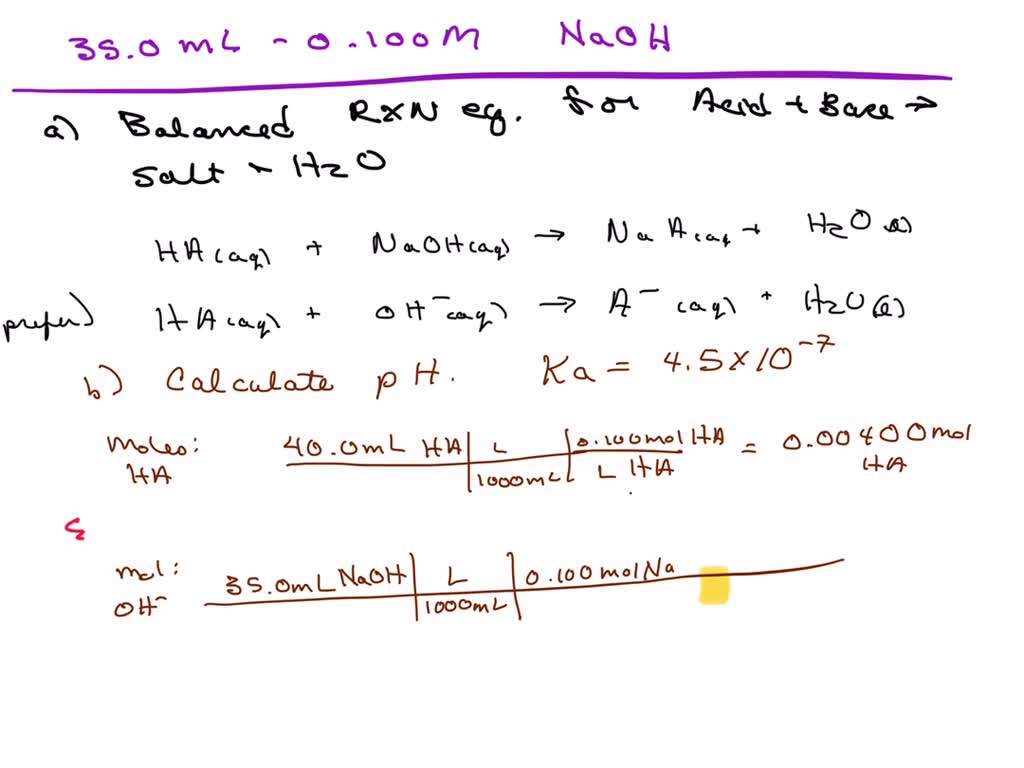 35.0 mL - 0.100M NaOH
a) Balanced RXN eq. for Acid + Base →
Salt + H2O
HA(aq) + NaOH(aq) → NaA(aq + H2O(l)
prefer) HA(aq) + OH⁻(aq) → A⁻(aq) + H2O(l)
b) Calculate pH. Ka = 4.5 x 10⁻⁷
Moles: 40.0mL HA | L | 0.100mol HA = 0.00400mol
HA 1000mL | L HA HA
mol: 35.0mL NaOH | L | 0.100molNa
OH⁻ 1000mL